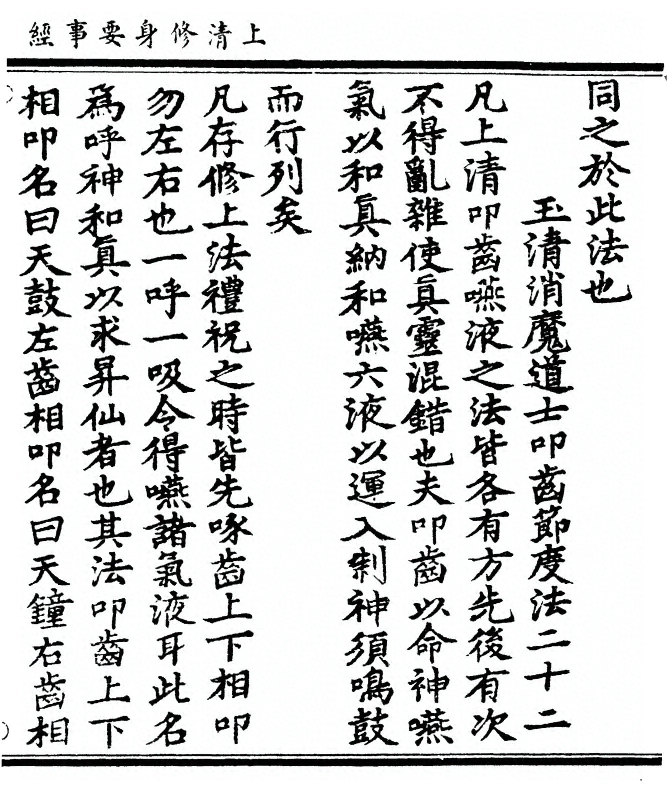 上清修身要事經
同之於此法也
玉清消魔道士叩齒節度法二十二
凡上清叩齒嚥液之法皆各有方先後有次
不得亂雜使眞靈混錯也夫叩齒以命神嚥
氣以和眞納和嚥六液以運入制神須鳴鼓
而行列矣
凡存修上法禮祝之時皆先啄齒上下相叩
勿左右也一呼一吸令得嚥諸氣液耳此名
為呼神和眞以求昇仙者也其法叩齒上下
相叩名曰天鼓左齒相叩名曰天鐘右齒相